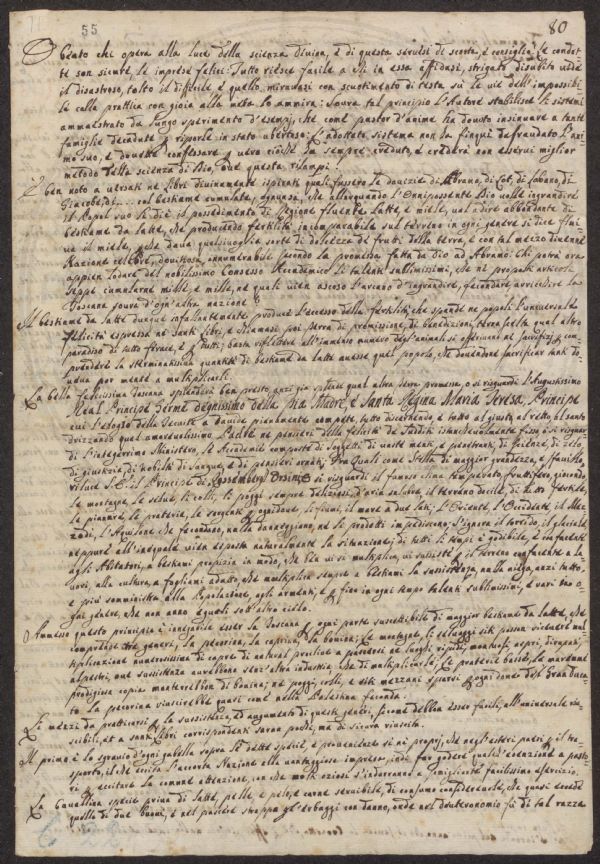 55
80
Beato chi opera alla luce della scienza divina, e di questa servesi di scorta, e consiglia, le condot-
te son sicure, le imprese felici: Tutto riesce facile a chi in essa affidasi, strigato
il disastroso, tolto il difficile, e quello, miravasi con scuotimento di testa su le vie dell' impossibi-
le colla prattica con gioia alla meta lo ammira: Sovra tal principio l'Autore stabilisce il sistemi
ammaestrato da lungo sperimento d'esempj, che come pastor d'anime ha dovuto insinuare a tante
famiglie decadute, e riporle in stato ubertoso: L'adottato sistema non ha finqui defraudato l'ani-
mo suo, e dovette confessare, vero ciò che ha sempre creduto, e crederà non esservi miglior
metodo della scienza di Dio, questa
È ben noto a versati ne Libri divinamente ispirati quali fussero le dovizie di Abramo, di Lot, di Labano, di
Giacobbe, col bestiame cumulate, ognunsa, che allorquando l'Onnipossente Dio volle ingrandire
il Popol suo li diè il possedimento di Regione fluente Latte, e miele, val a dire abbondante di
bestiame da latte, che producendo fertilità incomparabile sul terreno in ogni genere si dice flui-
va il miele, qualsivoglia sorte di dolcezza de frutti della terra, e con tal mezzo divenne
Nazione celebre, doviziosa, innumerabile secondo la promessa fatta da Dio ad Abramo: Chi potrà ora
appien lodare del nobilissimo Consesso Accademico li talenti sublimissimi, che ne proposti articoli
seppe cumularne mille, e mille, ne quali vien ascoso l'arcano d'ingrandire, fecondare arricchire la
Toscana sovra d'ogn'altra nazione?
Il bestiame da latte dunque infallantemente produce l'eccesso della fertilità che spande ne popoli l'universale
felicità espressa ne santi libri, e chiamasi poi terra di promissione, di benedizioni, terra scelta qual altro
paradiso di tutto ferace, e frutti; basta riflettere all'immenso numero degl'animali si offerivano ne sacrifizj, com-
prenderà la sterminatissima quantità di bestiame da latte avesse quel popolo, che dovendone sacrificar tanti do-
veva por mente a multiplicarli.
La bella felicissima Toscana splenderà ben presto, anzi già qual altra terra promessa, o si riguardi l'Augustissimo
Real Principe Germe degnissimo della Pia Madre, e Santa Regina Maria Teresa, Principe
cui l'elogio delle Scritture a Davide pienamente compete, tutto discernendo, e tutto al giusto, al retto, al santo
drizzando qual amorevolissimo Padre ne pensieri della felicità de sudditi instancabilmente fisso; o si riguardi
di l'integerrimo Ministero, le Accademie composte di soggetti di vaste menti, e penetranti, di scienze, di zelo,
di giustizia, di nobiltà di sangue, e di pensieri ornati. Fra quali come Stella di maggior grandezza, e fausto
riluce S. E. il Principe di Rosembergh Orsini; o si riguardi il famoso clima temperato, fruttifero, giocondo,
le montagne, le selve, li colli, li poggi sempre deliziosi, d'aria salubre, il terreno docile, di tutto fertile,
le pianure, le praterie, le sorgenti, li fiumi, il mare a due lati; L'Oriente, l'Occidente il Me-
zodì, l'Aquilone che fecondano, nulla danneggiano, ne li prodotti impediscono; s'ignora il torrido, il glaciale
neppure all'ineguale vien esposta naturalmente la situazione; di tutti li tempi è godibile, è confacente
agli Abitatori, a bestiami propizia in modo, che vi si multiplica, vi sussiste, e il terreno confacente a la-
vori, alla cultura, a fogliami adatto, che multiplica sempre a bestiami la sussistenza, nulla niega, anzi tutto,
e più somministra alla Popolazione, agli armenti, e fiere in ogni tempo talenti sublimissimi, e rari d'o-
gni genere, che non anno eguali sott'altro cielo.
Ammesso questo principio è innegabile esser la Toscana in ogni parte suscettibile di maggior bestiame da latte, che
comprende tre generi, la pecorina, la caprina, la bovina; Le montagne, li selvaggi siti posson
tiplicazione numerosissima di capre di natural proclive a pascersi ne luoghi ripidi, montuosi, aspri, dirupati,
alpestri, ove sussistenza avrebbono senz'altra industria che di multiplicarle; le praterie basse, le maremme
prodigiosa copia manterrebbon di bovina; ne poggi, colli, e siti mezzani sparsi ognidove del Gran Duca-
to la pecorina riuscirebbe quasi come nella Palestina feconda.
Li mezzi da pratticarsi per la sussistenza, ed augumento di questi generi, siccome debbon essere facili, all'universale riu-
scibili, et a santi Libri corrispondenti saran pochi, ma di sicura riuscita.
Il primo è lo sgravio d'ogni gabella sopra le dette specie, e provenienze sì ne proprj, che negl'esteri paesi, e il tra-
sporto, il che ecciti l'accorta Nazione alla vantaggiosa impresa, indi far godere qualch' esenzione a posto-
ri, per eccitare la comune attenzione, con che molti oziosi s'indurranno a simigliante facilissimo esercizio.
La Cavallina specie priva di latte, pelle, e pelo, e carne servibile, di consumo considerevole, che quasi eccede
quello di due bovi, e nel pascere strappa gl'erbaggi con danno, onde nel deuteronomio fù di tal razza